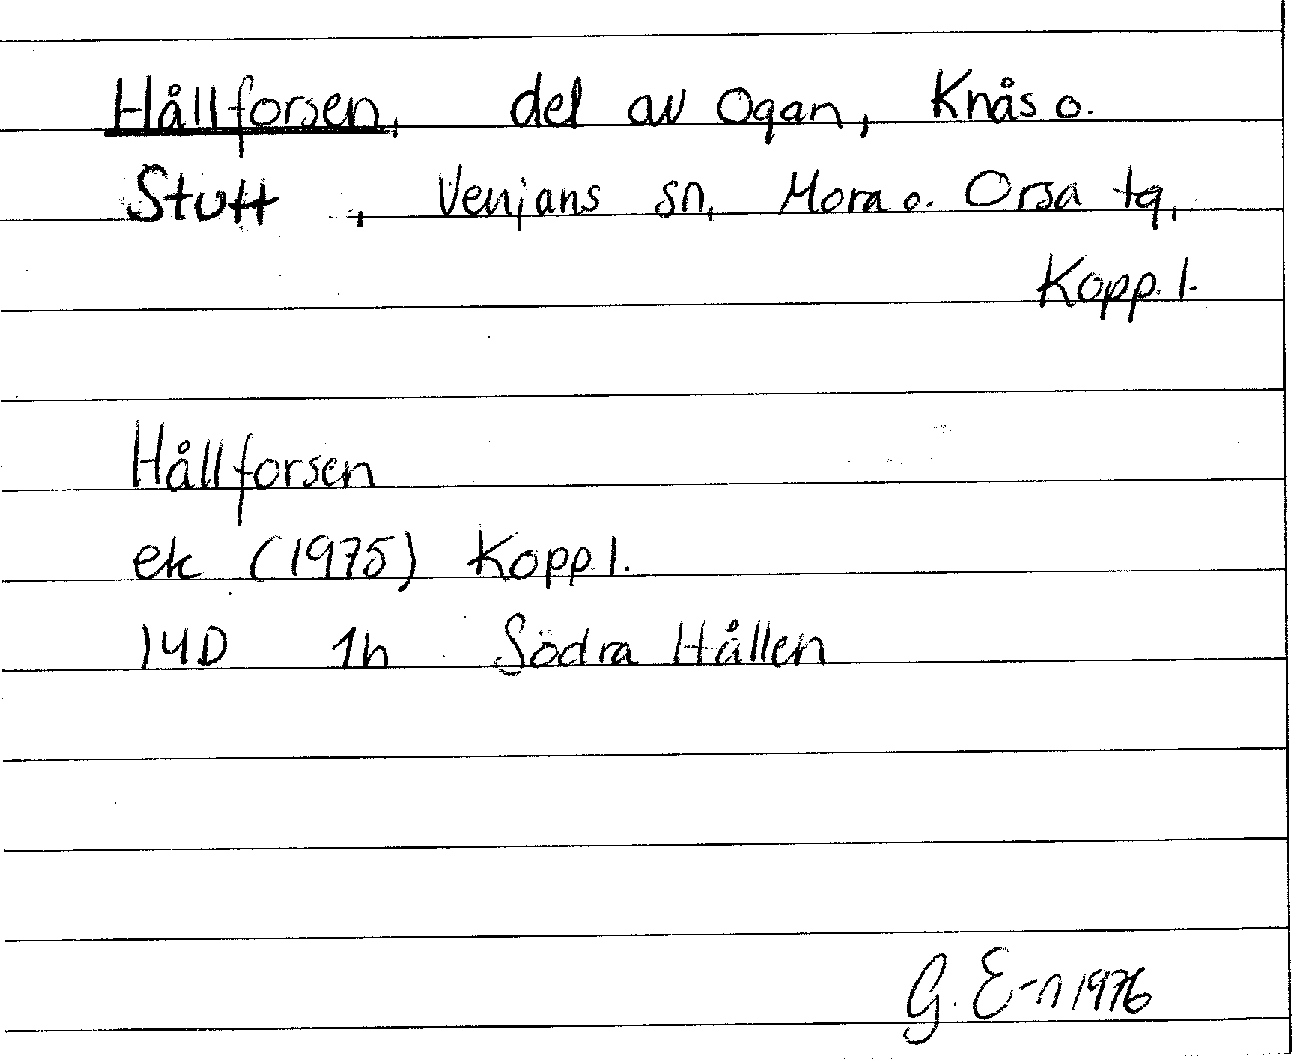 Hållforsen, del av Ogan, Knås o.
Stutt, Venjans sn, Mora o. Orsa tg,
Kopp. l.
Hållforsen
ek (1975) Kopp l.
14D 1h Södra Hållen
G. E-n 1976